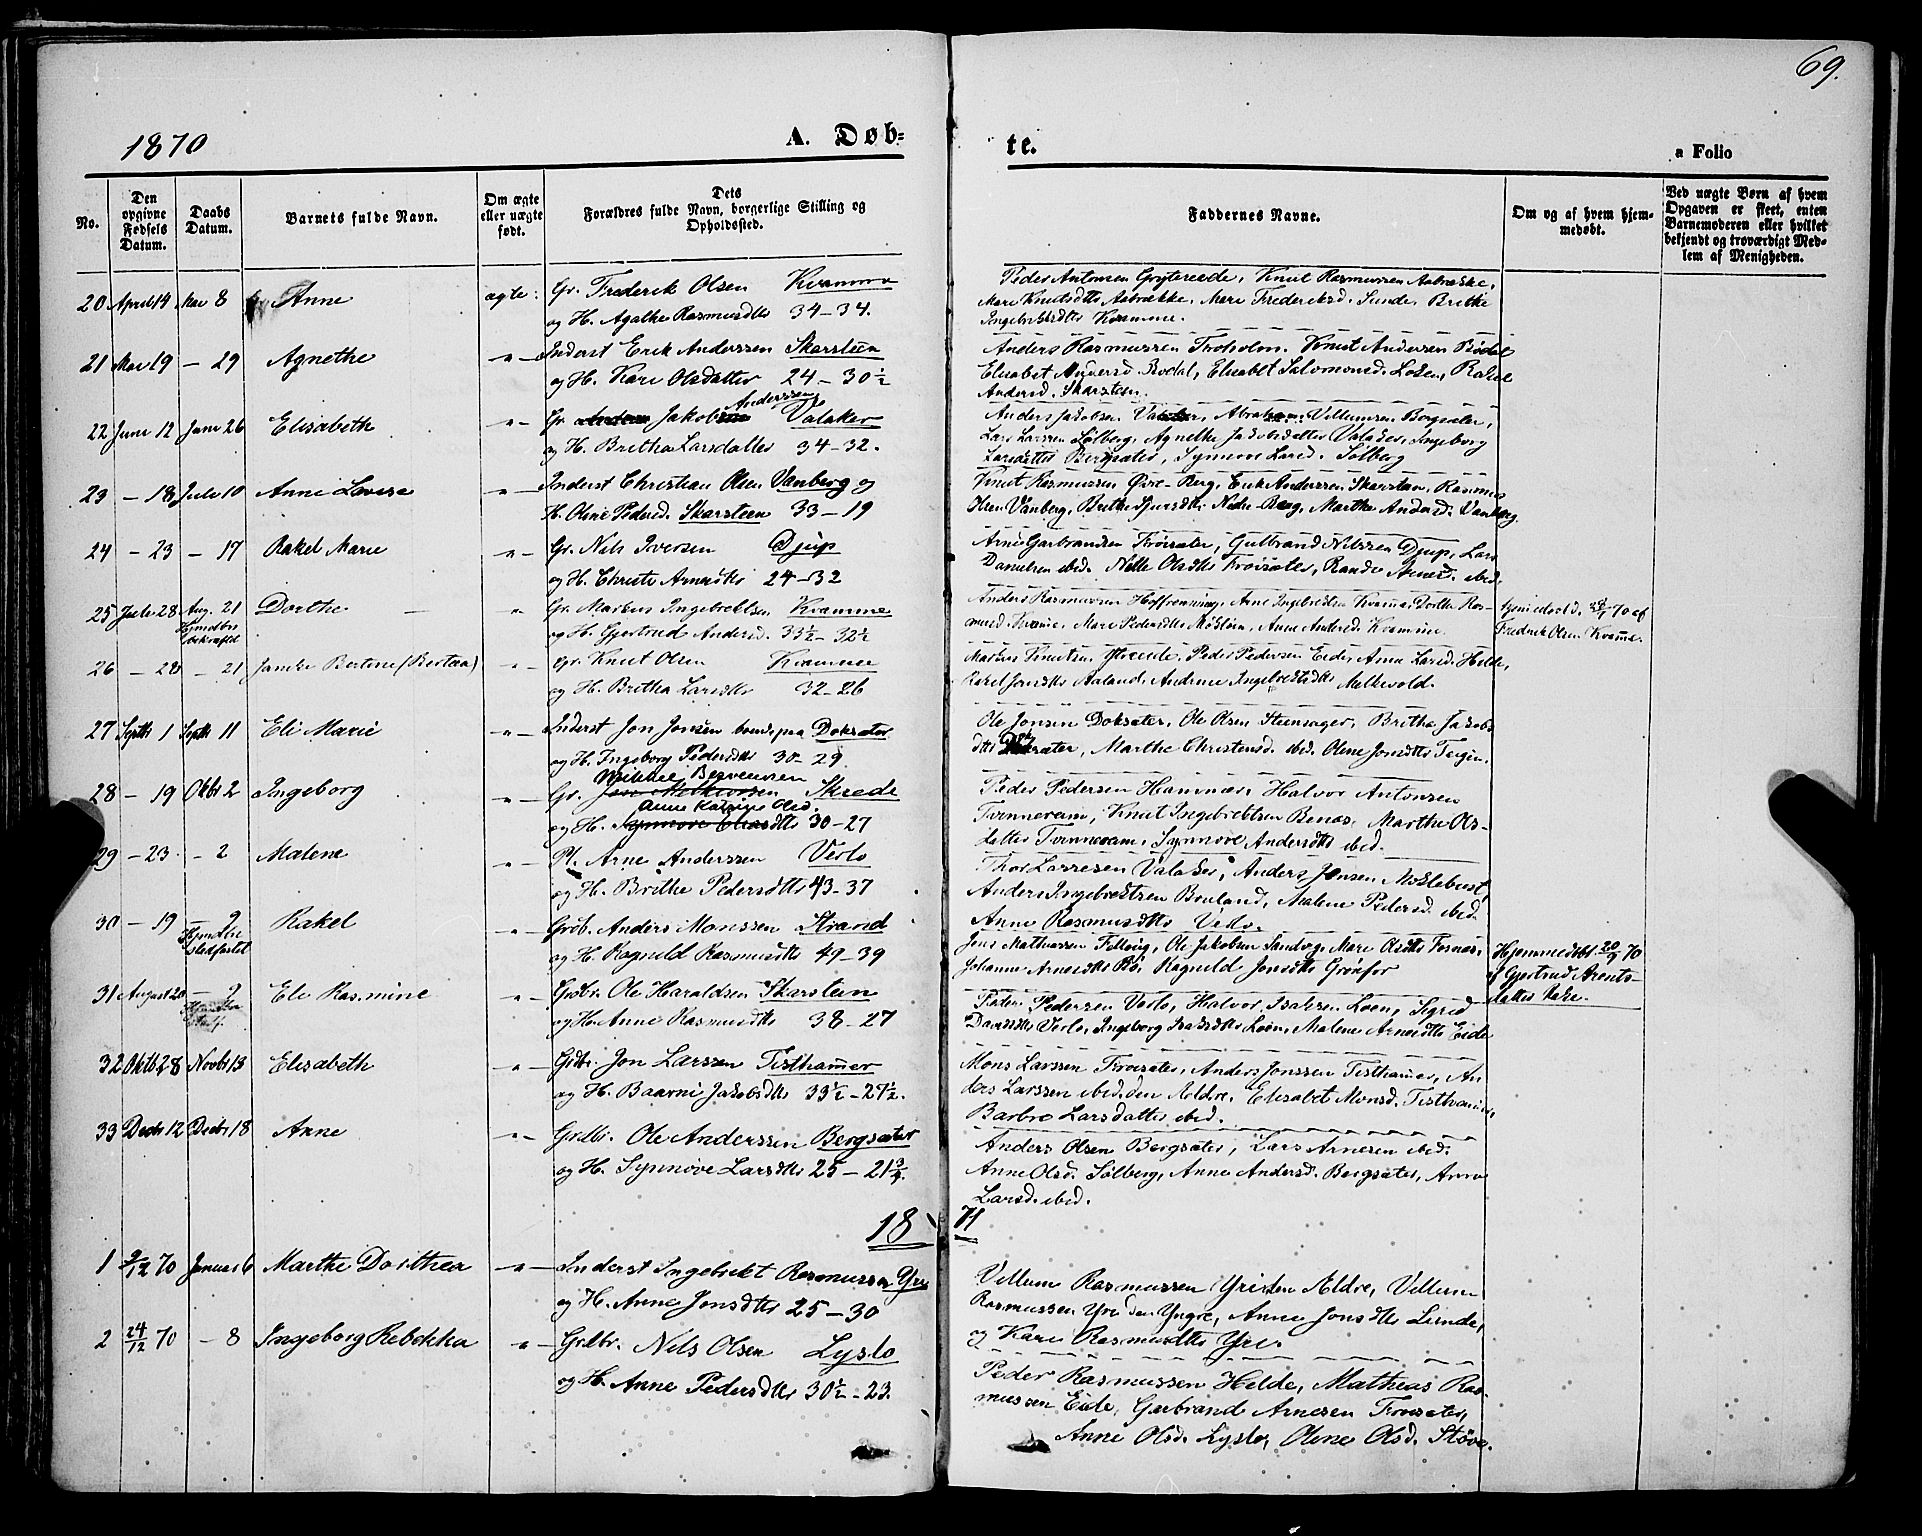 69.
1870
A. Døb=
te.
a Folio
No.
Den opgivne Fødsels Datum.
Daabs Datum.
Barnets fulde Navn.
Om ægte eller uægte født.
Dets Forældres fulde Navn, borgerlige Stilling og Opholdssted.
Faddernes Navne.
Om og af hvem hjem-
medøbt.
Ved uægte Børn af hvem
Opgaven er skeet, enten
Barnemoderen eller hvilket
bekjendt og troværdigt Med-
lem af Menigheden.
20 April 14 Mai 8 Anne ægte: Gr. Frederik Olsen Kvamme
og H. Agathe Rasmusdtr 34-34.
Peder Antonsen Grytereede, Knut Rasmussen Aabrække,
Mari Knutsdtr Aabrække, Mari Frederiksd. Sunde, Brithe
Ingebrigtsdtr Kvamme.
21 Mai 19 - 29 Agnethe -"- Inderst Erik Anderssen Skarsteen
og H. Kari Olsdatter 24-30½
Anders Rasmussen Troholm, Knut Andersen Bødal
Elisabet Andersd Bødal, Elisabet Salomonsd. Loen, Rakel
Andersd. Skarsteen.
22 Juni 12 Juni 26 Elisabeth -"- Gr. Jakob Anderssen Valaker
og H. Britha Larsdatter 34-32.
Anders Jakobsen Valaker, Abraham Villumsen Bergsæter,
Lars Larssen Sølberg, Agnethe Jakobsdatter Valaker, Ingeborg
Larsdatter Bergsæter, Synneve Larsd. Sølberg
23 - 18 Juli 10 Anne Lovise -"- Inderst Christian Olsen Vanberg og
H. Oline Pedersd. Skarsteen 33-19
Knut Rasmussen Øvre-Berg, Erik Anderssen Skarsteen, Rasmus
Olsen Vanberg, Brithe Sjursdtr Nedre-Berg, Marthe Andersd. Vanberg
24 - 23 - 17 Rakel Marie -"- Gr. Nils Iversen Djup
og H. Christi Arnesdtr 24-32
Arne Garbrandsen Frøisæter, Gulbrand Nilssen Djup, Lars
Danielsen ibid. Nille Olsdtr Frøisæter, Randi Arnesd. ibid.
25 Juli 28 Aug. 21 Dorthe " Gr. Markus Ingebrektsen Kvamme
og H. Gjertrud Andersd. 33½-32½
Anders Rasmussen Hoffrenning, Arne Ingebretsen Kvamme, Dorthe Ras-
musd. Kvamme, Mari Pedersdtr, Anne Andersd. Kvamme.
Hjemmedøbt 28/7 70 af
Fredrik Olsen Kvamme.
26 - 28 - 21 Janike Bertine (Bertea) -"- Gr. Knut Olsen Kvamme
og H. Britha Larsdtr 32-26
Markus Knutsen, Peder Pedersen Eide, Anna Larsd. Hilde,
Rakel Jonsdtr Aaland, Andrine Ingebretsdtr Melkevold.
27 Septb 1 Septb 11 Eli Marie -"- Inderst Jon Jonsen Doksæter
og H. Ingeborg Pedersdtr 30-29.
Ole Jonsen Doksæter, Ole Olsen Steensager, Britha Jakobs-
dtr Doksæter, Marthe Christensd. ibid. Oline Jonsdtr Tugin.
28 - 19 Oktbr 2 Ingeborg -"- Gr. Jon Melkiorsen Skrede
og H. Anne Katrine Olsd. 30-27
Peder Pedersen Hammer, Halvor Antonsen
Tvinnereim, Knut Ingebrektsen Benæs, Marthe Ols-
datter Tvinnereim, Synnøve Andersdtr ibid.
29 - 23. - 2 Malene -"- Pl. Arne Anderssen Verlo
og H. Brithe Pedersdtr 43-37
Thor Larssen Valaker, Anders Jonsen Møklebust,
Anders Ingebrektsen Bruland, Malene Pedersd. ibid.
Anne Rasmusdtr Verlo.
30 - 19 - 9 Rakel -"- Grdb. Anders Monssen Strand
og H. Ragnild Rasmusdtr 49-39
Jens Mathiassen Fellvig, Ole Jakobsen Sandvig, Mari Olsdtr Tornæs,
Johanne Arnesdtr Bø, Ragnild Jonsdtr Grønfor
Hjemmedøbt 20/9 70
af Gjertrud Arents-
datter
31 August 20 - 9 Eli Rasmine -"- Grdbr. Ole Haraldsen Skarsteen
og H. Anne Rasmusdtr 38-27
Peder Pedersen Verlo, Halvor Isaksen Loen, Sigrid
Davidsdtr Verlo, Ingeborg Isaksdtr Loen, Malene Arnesdtr Eide
32 Oktb. 28 Novbr 13 Elisabeth -"- Grdbr. Jon Larssen Tisthamer
og H. Baarni Jakobsdtr 33½-27½.
Mons Larssen Frøisæter, Anders Jonssen Tisthamer, An-
ders Larssen ibid. den Ældre, Elisabet Monsd. Tisthamer,
Barbro Larsdatter ibid.
33 Decbr 12 Decbr 18 Anne -"- Grdbr. Ole Anderssen Bergsæter
og H. Synnøve Larsdtr 25-21¾.
Anders Olsen Bergsæter, Lars Arnesen ibid.
Anne Olsd. Sølberg, Anne Andersd. Bergsæter, Anna
Larsd. ibid.
1871
1 9/12 70 Januar 6 Marthe Dorthea -"- Inderst Ingebrikt Rasmussen Yri
og H. Anne Jonsdtr 25-30
Villum Rasmussen Yri den Ældre, Villum
Rasmussen Yri den Yngre, Anne Jonsdtr Linde,
og Kari Rasmusdtr Yri.
2 24/12 70 - 8 Ingeborg Rebekka -"- Grdbr. Nils Olsen Lyslo
og H. Anne Pedersdtr 30½-23.
Peder Rasmussen Hilde, Mathias Ras-
mussen Eide, Garbrand Arnesen Frøisæter,
Anne Olsd. Lyslo, Oline Olsd. Støve.